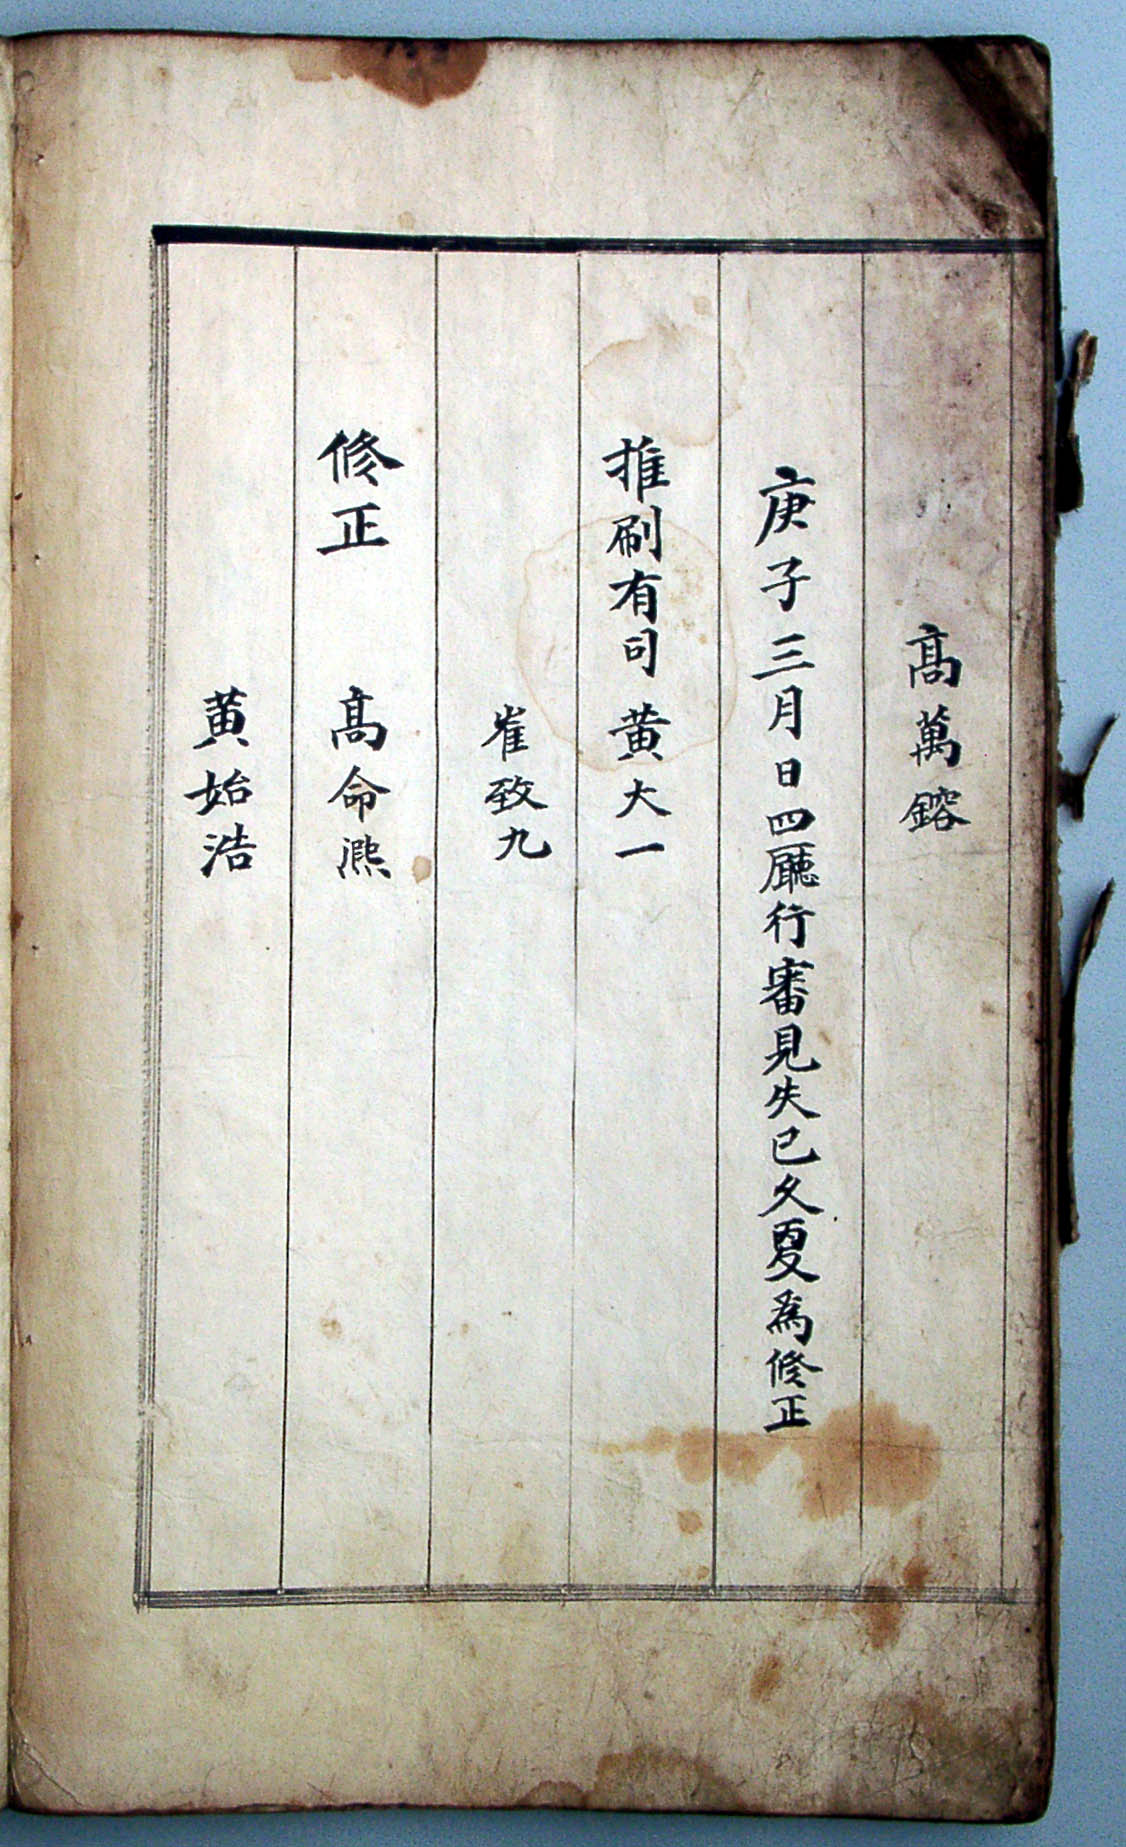 高萬鎔
庚子三月日四廳行審見失已久夏為修正
推刷有司 黄大一
崔致九
修正 高命凞
黄始浩